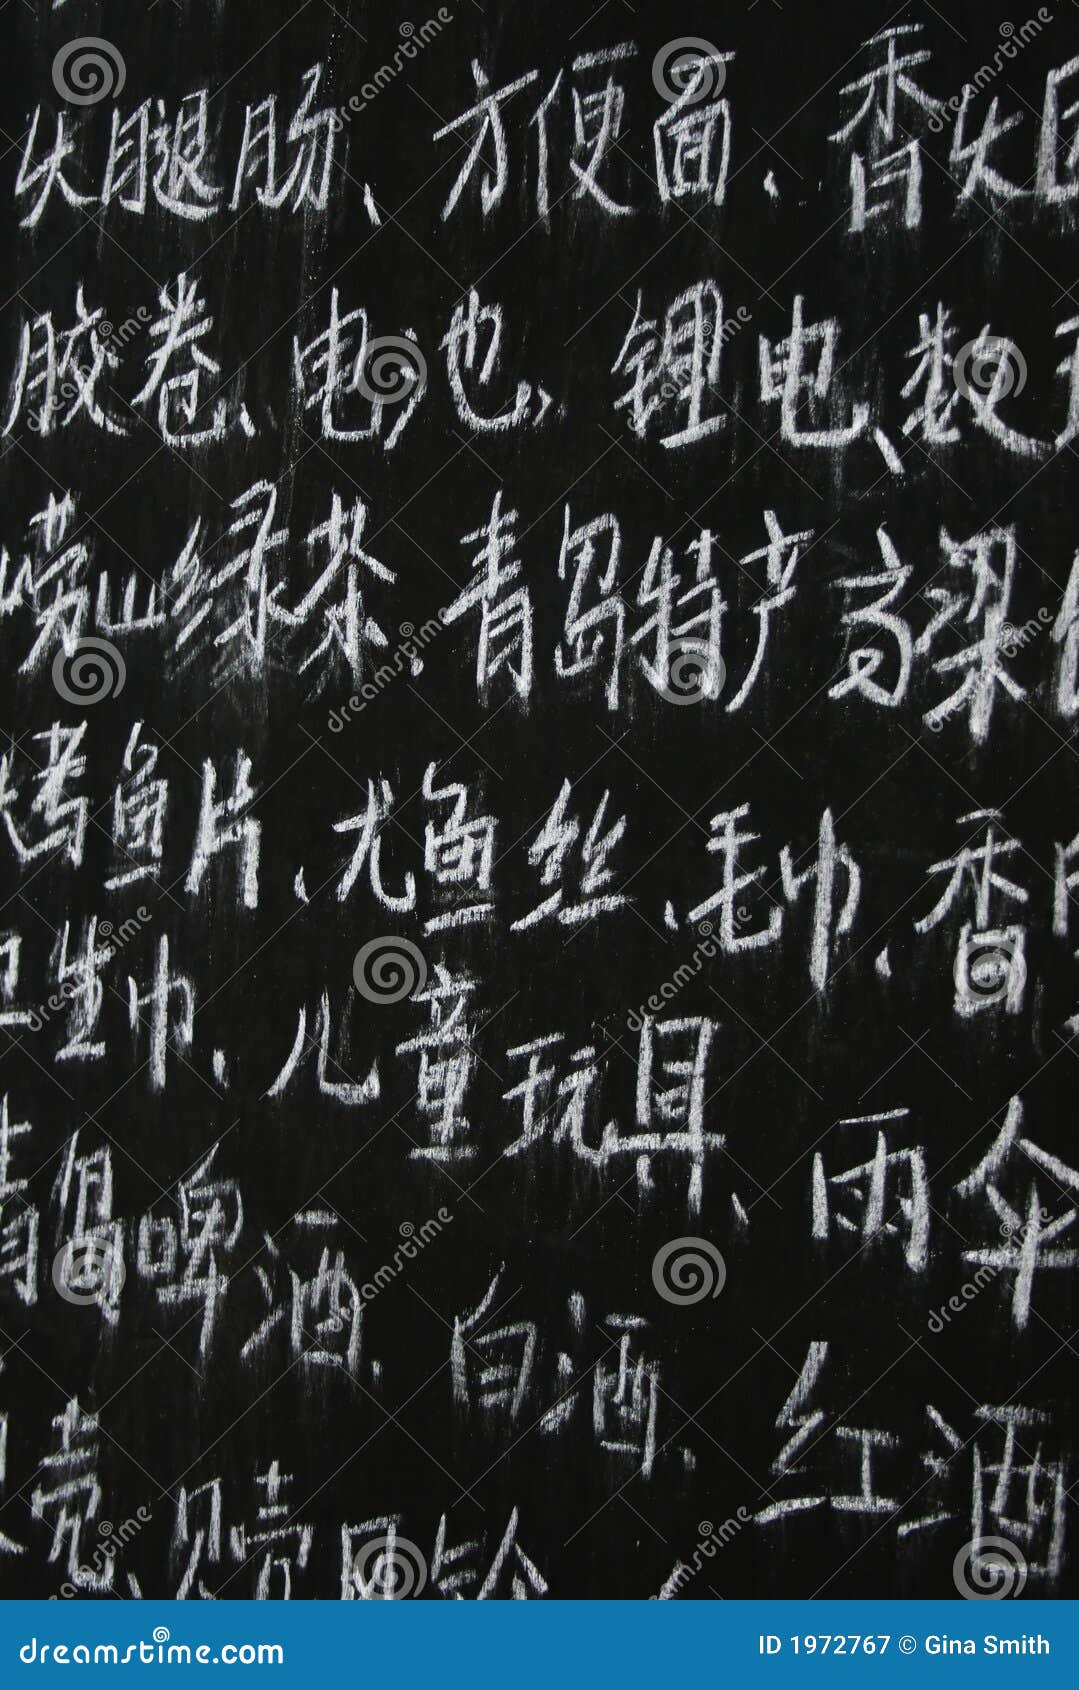 火腿肠、方便面、香
胶卷、电池、锂电、数
崂山绿茶、青岛特产高粱
烤鱼片、尤鱼丝、毛巾、香
生巾、儿童玩具、雨伞
青岛啤酒、白酒、红酒
贝壳、贝壳风铃、
dreamstime.com
ID 1972767 © Gina Smith